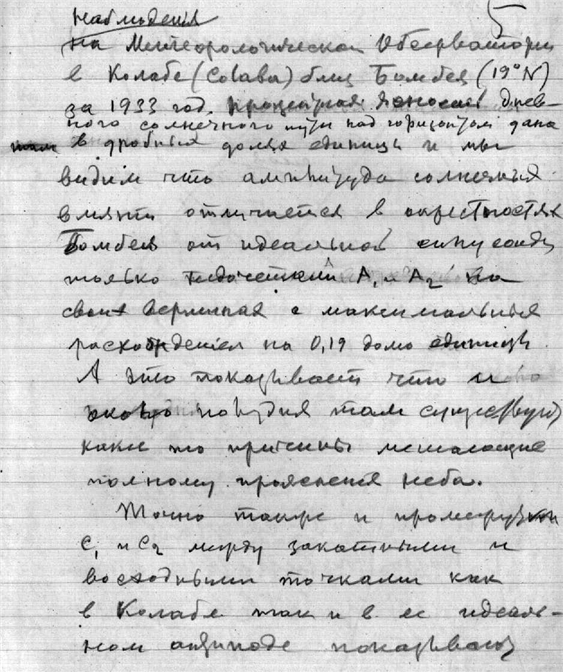 наблюдения 5
на Метеорологической Обсерватории
в Колабе (Colaba) близ Бомбея (19° N)
за 1933 год, днев-
ного солнечного пути над горизонтом дана
там в дробных долях единицы и мы
видим что амплитуда солнечных
влияний отличается в окрестностях
Бомбея от идеальной синусоиды
только A₁ и A₂ на
своих вершинах с максимальным
расхождением на 0,19 долю единицы.
А это показывает что и
около полудня там существуют
какие то причины мешающие
полному прояснению неба.
Точно также и промежутки
C₁ и C₂ между закатными и
восходными точками как
в Колабе так и в ее идеаль-
ном антиподе показывают